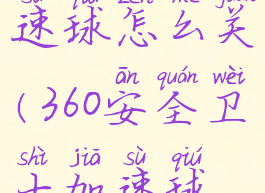 速球怎么关
ān quán wèi
(360安全卫
shì jiā sù qiú
士加速球